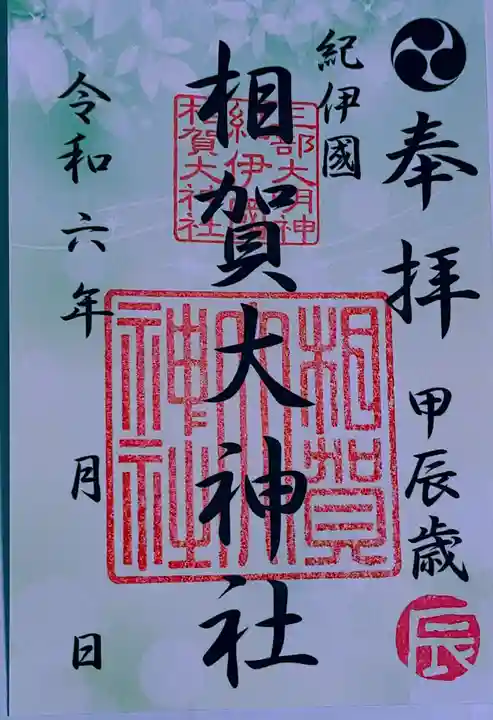 奉拝
甲辰歳
辰
紀伊國
三部大明神
紀伊國
相賀大神社
相賀大神社
相賀大神社
令和六年 月 日